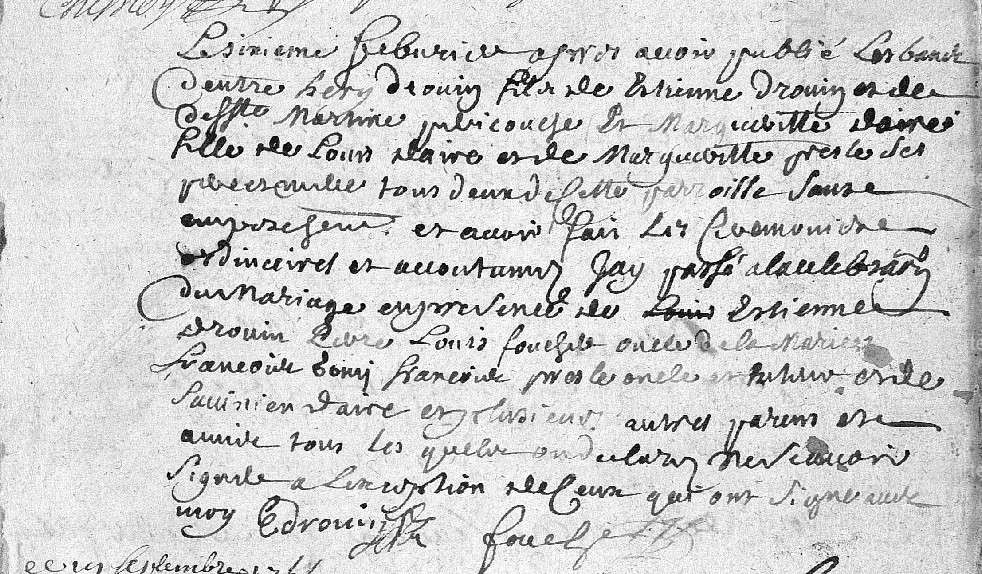 Le sixieme feburier apres avoir publié les bans
d'entre hery drouin fils de Estienne drouin et de
deffte Martine et Margueritte daire
fille de Louis daire et de Margueritte presle ses
pere et mere tous deux de cette parroisse sans
empeschem. et avoir fait les ceremonies
ordinaires et accoutumez Jay passé a la celebraon
du Mariage en presence de Louis Estienne
drouin pere Louis fouche oncle de la Mariee
francois francois presle oncle et tuteur et de
Savinien daire et plusieurs autres parens et
amis tous les quels ont declarez ne scavoir
signer a l'exception de ceux qui ont signe avec
moy Edrouin fouche
septembre